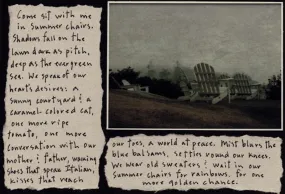 Come sit with me
in Summer chairs.
Shadows fall on the
lawn dark as pitch,
deep as the evergreen
sea. We speak of our
hearts desires: a
sunny courtyard & a
caramel-colored cat,
one more ripe
tomato, one more
conversation with our
mother & father, warning
shoes that speak Italian,
kisses that reach
our toes, a world at peace. Mist blurs the
blue balsams, settles round our knees.
We wear old sweaters & wait in our
Summer chairs for rainbows, for one
more golden chance.